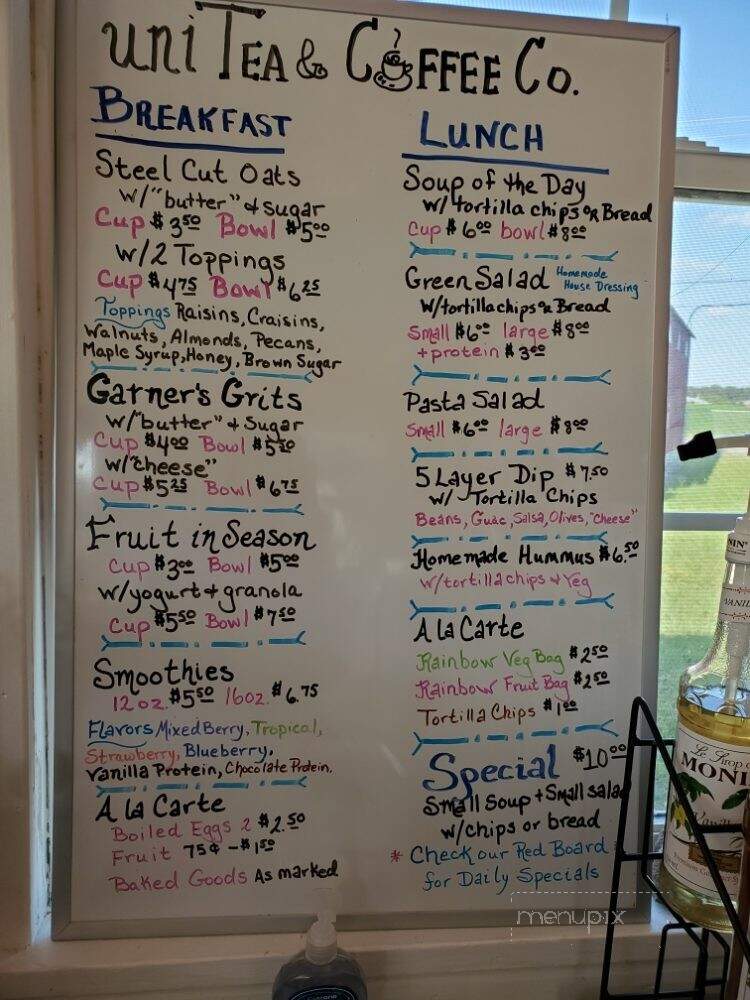 uniTea & Coffee Co.
Breakfast
Steel Cut Oats
w/"butter" & sugar
Cup $3.50 Bowl $5.00
w/2 Toppings
Cup $4.75 Bowl $6.25
Toppings Raisins, Craisins,
Walnuts, Almonds, Pecans,
Maple Syrup, Honey, Brown Sugar
Garner's Grits
w/"butter" + Sugar
Cup $4.00 Bowl $5.50
w/"cheese"
Cup $5.25 Bowl $6.75
Fruit in Season
Cup $3.00 Bowl $5.00
w/yogurt + granola
Cup $5.50 Bowl $7.50
Smoothies
12 oz. $5.50 16oz. $6.75
Flavors Mixed Berry, Tropical,
Strawberry, Blueberry,
Vanilla Protein, Chocolate Protein.
A la Carte
Boiled Eggs 2 $2.50
Fruit 75¢ - $1.50
Baked Goods As marked
Lunch
Soup of the Day
w/ tortilla chips or Bread
Cup $6.00 bowl $8.00
Green Salad Homemade
House Dressing
w/tortilla chips or Bread
Small $6.00 large $8.00
+ protein $3.00
Pasta Salad
Small $6.00 large $8.00
5 Layer Dip $7.50
w/ Tortilla Chips
Beans, Guac, Salsa, Olives, "Cheese"
Homemade Hummus $6.50
w/tortilla chips + Veg
A la Carte
Rainbow Veg Bag $2.50
Rainbow Fruit Bag $2.50
Tortilla Chips $1.00
Special $10.00
Small Soup + Small salad
w/chips or bread
* Check our Red Board
for Daily Specials
menupix
Le Sirop
MONI